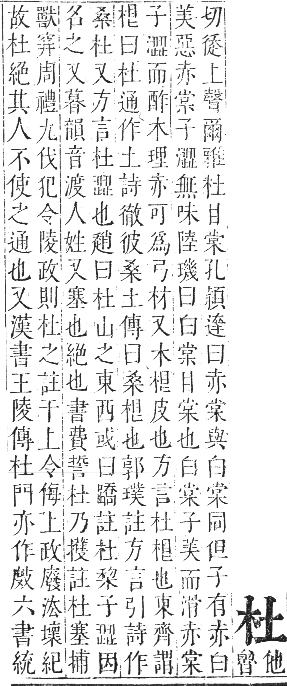 杜 他魯
切從上聲爾雅杜甘棠孔穎達曰赤棠與白棠同但子有赤白
美惡赤棠子澀無味陸璣曰白棠甘棠也白棠子美而滑赤棠
子澀而酢木理赤可為弓材又木根皮也方言杜根也東齊謂
根曰杜通作土詩徹彼桑土傳曰桑根也郭璞註方言引詩作
桑杜又方言杜澀也趙曰杜山之東西或曰蹻註杜棃子澀因
名之又暮韻音渡人姓又塞也絕也書費誓杜乃擭註杜塞捕
獸穽周禮九伐犯令陵政則杜之註干上令侮上政廢法壞紀
故杜絕其人不使之通也又漢書王陵傳杜門亦作㪇六書統